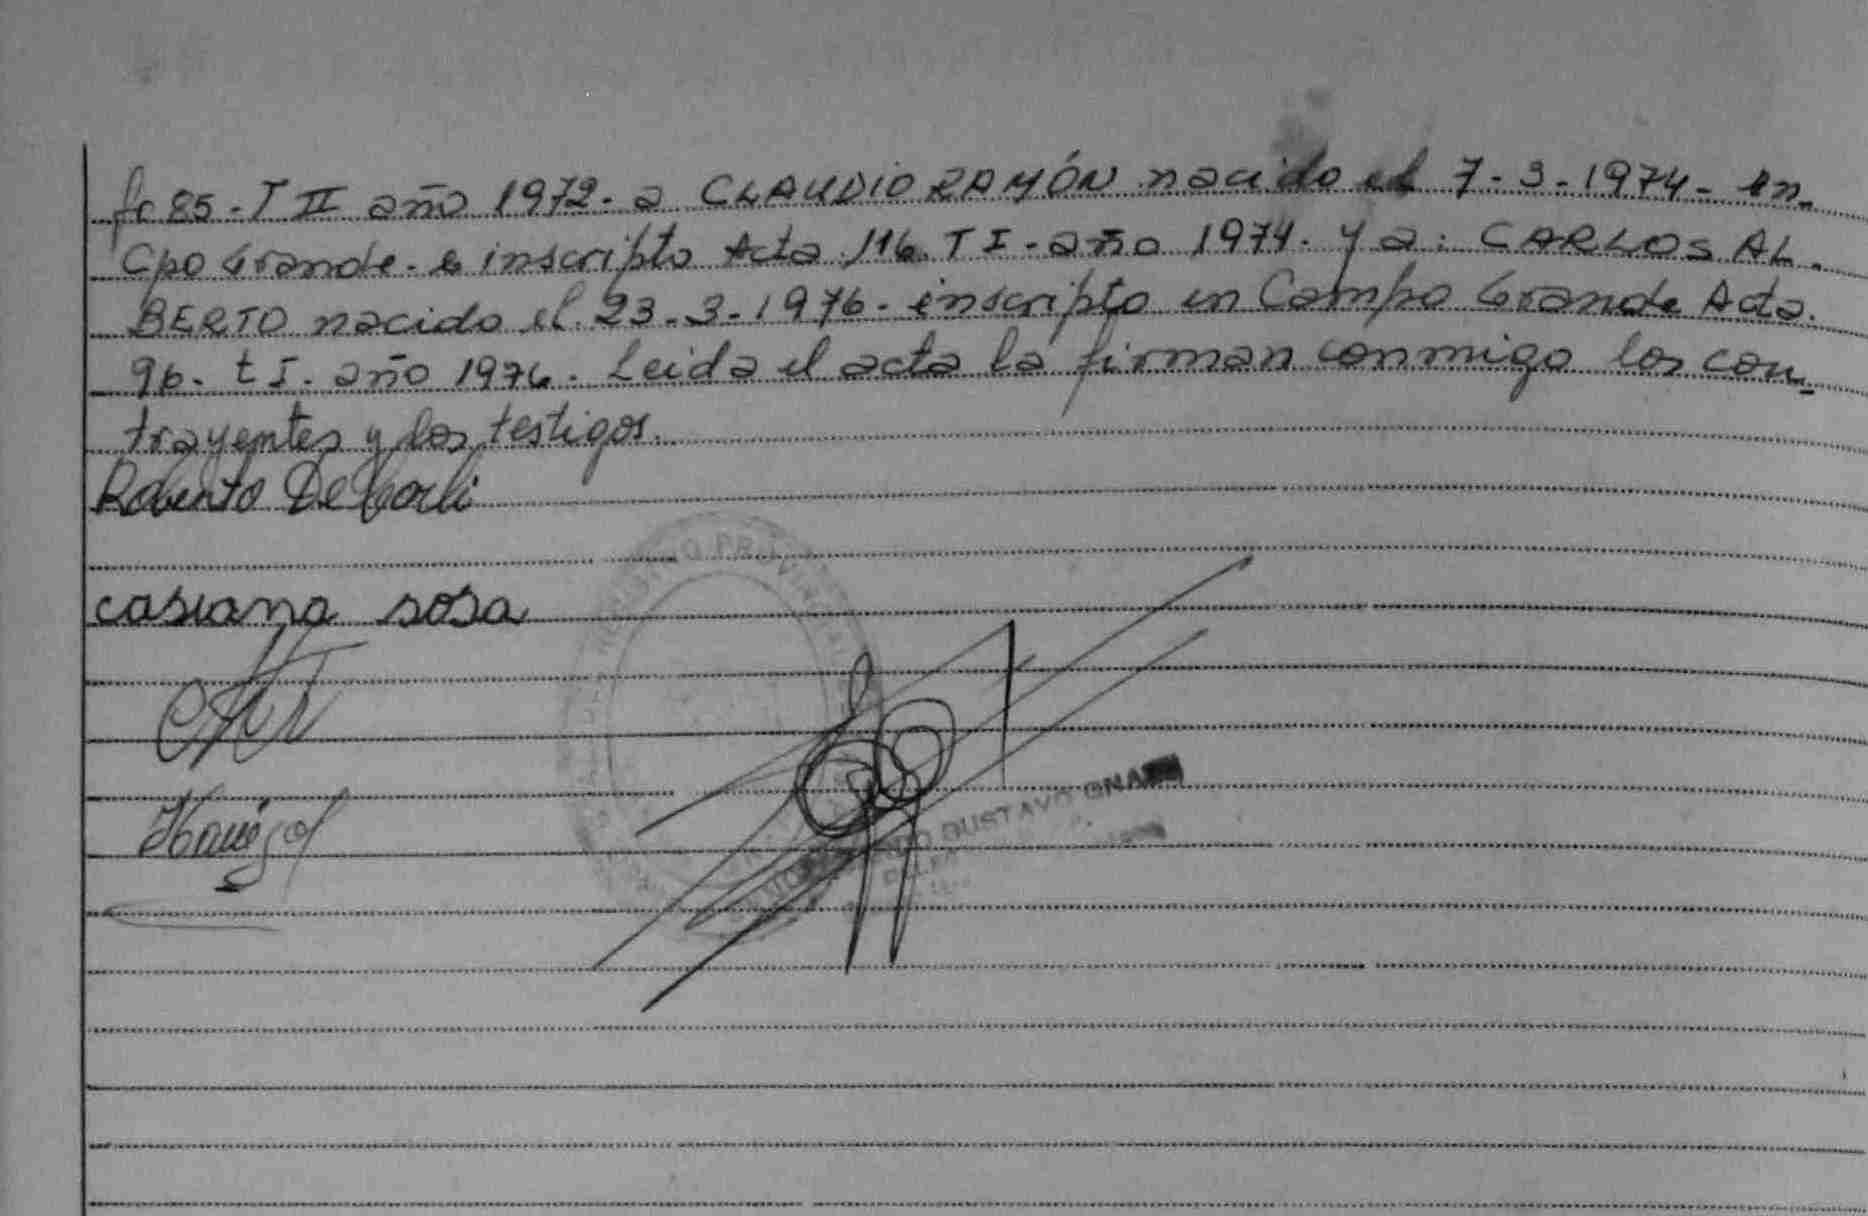 fo 85 - T II año 1972 - a CLAUDIO RAMÓN nacido el 7-3-1974 - en
Cpo Grande - e inscripto Acta 116 T I - año 1974. y a: CARLOS AL-
BERTO nacido el 23-3-1976 - inscripto en Campo Grande Acta
96 - t I - año 1976. Leida el acta la firman conmigo los con-
trayentes y los testigos.
Roberto
casiana sosa
GUSTAVO